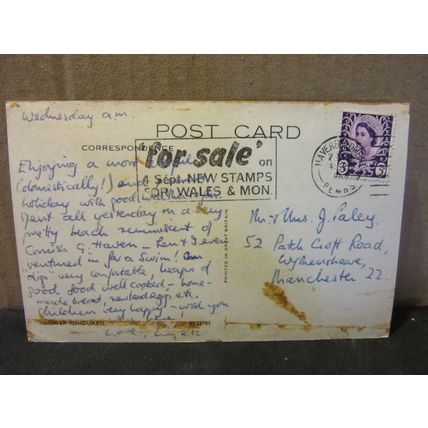 Wednesday a.m.
POST CARD
CORRESPONDENCE
'for sale' on
4 Sept. NEW STAMPS
FOR WALES & MON.
HAVERFORDWEST
PEMBS
3D 3D
Enjoying a most
(domestically!) and
holiday with good
Spent all yesterday on a very
pretty beach reminiscent of
Cornish G. Haven - Len & I even
"ventured in for a swim! Our
"digs" very comfortable, heaps of
good food well cooked - home-
made bread, new laid eggs etc.
Children very happy - wish you
were here!
Love,
Mr & Mrs. J. Paley,
52 Path Croft Road,
Wythenshawe,
Manchester 22.
PRINTED IN GREAT BRITAIN
LOWER FISHGUARD